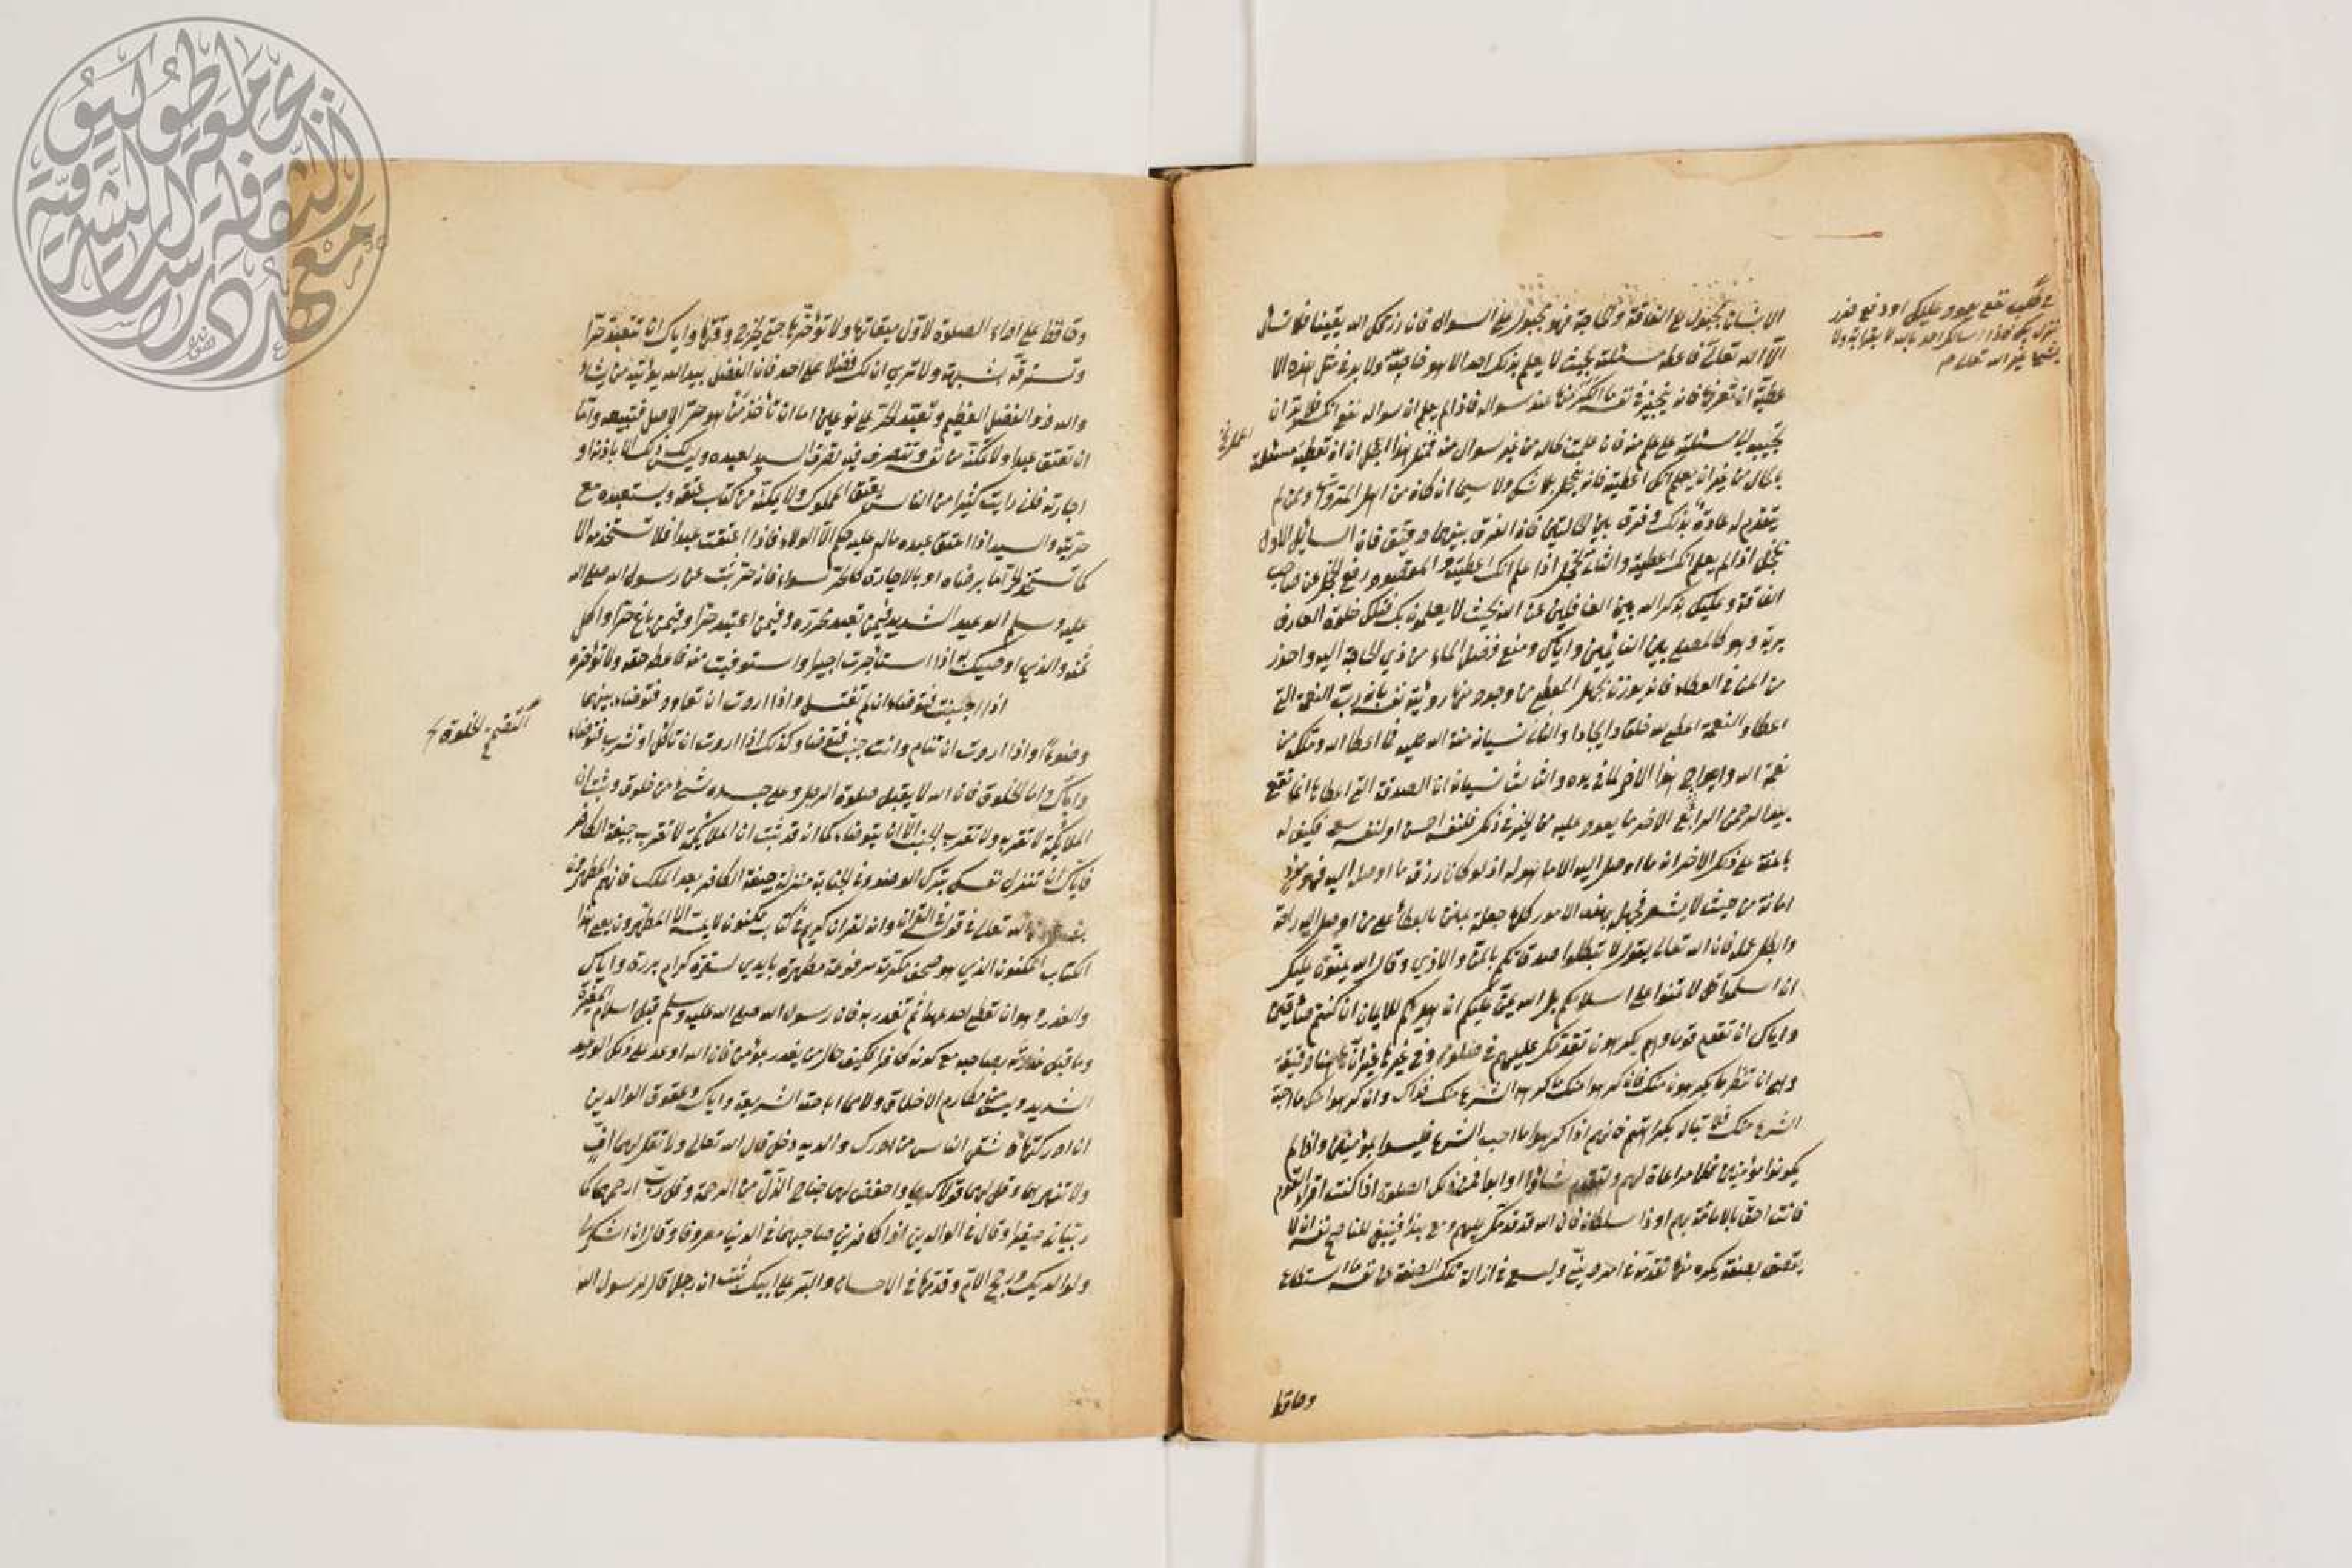 الانسان مجبول على الفاقة والحاجة فهو مجبول على السوال فان رزقك الله يقينا فلا تسأل
الا الله تعالى
عطية ان تعرفها فانه
بالحال من غير ان يعلم انك اعطيته فانه يخجل بلا شك ولا سيما ان كان من اهل المروات وممن لم
يتقدم له عادة بذلك وفرق بين الحالتين فان الفرق بينهما دقيق فان السايل الاول
يخجل اذا لم يعلم انك اعطيته والثاني يخجل اذا علم انك اعطيته والمقصود رفع الخجل عن صاحب
الفاقة وعليك بذكر الله بين الغافلين عن الله بحيث لا يعلمون بك فتلك خلوة العارف
بربه وهو كالمصلى بين النائمين واياك ومنع فضل الماء من ذي الحاجة اليه واحذر
من المن في العطاء فانه يوذن بجهل المعطي من وجوه منها رويته نفسه بانه رب النعمة التي
اعطا والنعمة انما هي لله خلقا وايجادا والثاني نسيانه منة الله عليه فيما اعطاه الله وملكه من
نعمة الله واحواج هذا الاخر لما في يده والثالث نسيانه ان الصدقة التي اعطاها انما تقع
بيد الرحمن الرابع الاخر ما يعود عليه من الخير في ذلك فلنفسه احسن او لنفسه سعى فكيف له
بالمنة على ذلك الاخر انه ما اوصل اليه الا ما هو له اذ لو كان رزقه ما اوصل اليه فهو مؤد
امانة من حيث لا يشعر فجهل بهذه الامور كلها جعله يمتن بالعطاء على من اوصل اليه راحة
وابطل عمله فان الله تعالى يقول لا تبطلوا صدقاتكم بالمن والاذي وقال الله يمنون عليك
ان اسلموا قل لا تمنوا علي اسلامكم بل الله يمن عليكم ان هديكم للايمان ان كنتم صادقين
واياك ان تتقدم قوما وهم يكرهون تقدمك عليهم في صلوة وفي غيرها غير ان هاهنا دقيقة
وهي ان تنظر ما يكرهون منك فان كرهوا منك ما كره الشرع منك فذاك وان كرهوا منك ما احبه
الشرع منك فلا تبال بكراهتهم فانهم اذا كرهوا ما احب الشرع فليسوا بمؤمنين واذا لم
يكونوا مؤمنين فلا مراعاة لهم ولتتقدم شاؤا او ابوا فمن ذلك الصلوة اذا كنت اقرا القوم
فانت احق بالامامة بهم او ذا سلطان فان الله قد قدمك عليهم ومع هذا فينبغي للناصح نفسه ان لا
يتصف بصفة يكره منها تقدمه في امر ديني وليسع في ازالة تلك الصفة عن نفسه ما استطاع
وحافظ
وحافظ على اداء الصلوة لاول ميقاتها ولا تؤخرها حتى يخرج وقتها واياك ان تتعبد حرا
وتسترقه بشبهة ولا تري ان لك فضلا على احد فان الفضل بيد الله يؤتيه من يشاء
والله ذو الفضل العظيم وتعبد الحر على نوعين اما ان تأخذ من هو حر الاصل فتبيعه واما
ان تعتق عبدا ولا تمكنه من نفسه وتتصرف فيه تصرف السيد لعبده وليس لك ذلك الا باذنه او
اجازته فلقد رايت كثيرا من الناس يعتق المملوك ولا يمكنه من كتاب عتقه ويستعبده مع
حريته والسيد اذا اعتق عبده ماله عليه حكم الا الولاء فاذا اعتقت عبدا فلا تستخدمه الا
كما تستخدم الحر اما برضاه او بالاجارة كالحر سواء فانه حر ثبت عن رسول الله صلى الله
عليه وسلم الوعيد الشديد فيمن تعبد محررة وفيمن اعتبد حرا وفيمن باع حرا واكل
ثمنه والذي اوصيك به اذا استأجرت اجيرا واستوفيت منه فاعطه حقه ولا تؤخره
اذا اجنبت فتوضاء ان لم تغتسل واذا اردت ان تعاود فتوضاء بينهما
وضوءا واذا اردت ان تنام وانت جنب فتوضا وكذلك اذا اردت ان تاكل او تشرب فتوضاء
واياك والخلوق فان الله لا يقبل صلوة الرجل وعلى جسده شئ من خلوق وثبت ان
الملائكة لا تقربه ولا تقرب الجنب الا ان يتوضاء كما انه قد ثبت ان الملائكة لا تقرب جيفة الكافر
فاياك ان تنزل نفسك بترك الوضوء في الجنابة منزلة جيفة الكافر بعد الملك فانهم المطهرون
الله تعالى في قوله في القران وانه لقران كريم في كتاب مكنون لا يمسه الا المطهرون يعني هذا
الكتاب المكنون الذي هو صحف مكرمة مرفوعة مطهرة بايدي سفرة كرام بررة واياك
والغدر وهو ان تعطي احد عهدا ثم تغدر به فان رسول الله صلى الله عليه وسلم قبل اسلام المغيرة
وما قبل غدرته بصاحبه مع كونه كافرا فكيف حال من يغدر بمؤمن فان الله اوعد على ذلك الوعيد
الشديد وليس من مكارم الاخلاق ولا مما اباحته الشريعة واياك وعقوق الوالدين
ان ادركتهما فاشقى الناس من ادرك والديه ودخل قال الله تعالى ولا تقل لهما اف
ولا تنهرهما وقل لهما قولا كريما واخفض لهما جناح الذل من الرحمة وقل رب ارحمهما كما
ربياني صغيرا وقال في الوالدين اذا كافرين صاحبهما في الدنيا معروفا وقال ان اشكر لي
ولوالديك ورجح الام وقدمها في الاحسان والبر على ابيك ثبت ان رجلا قال لرسول الله